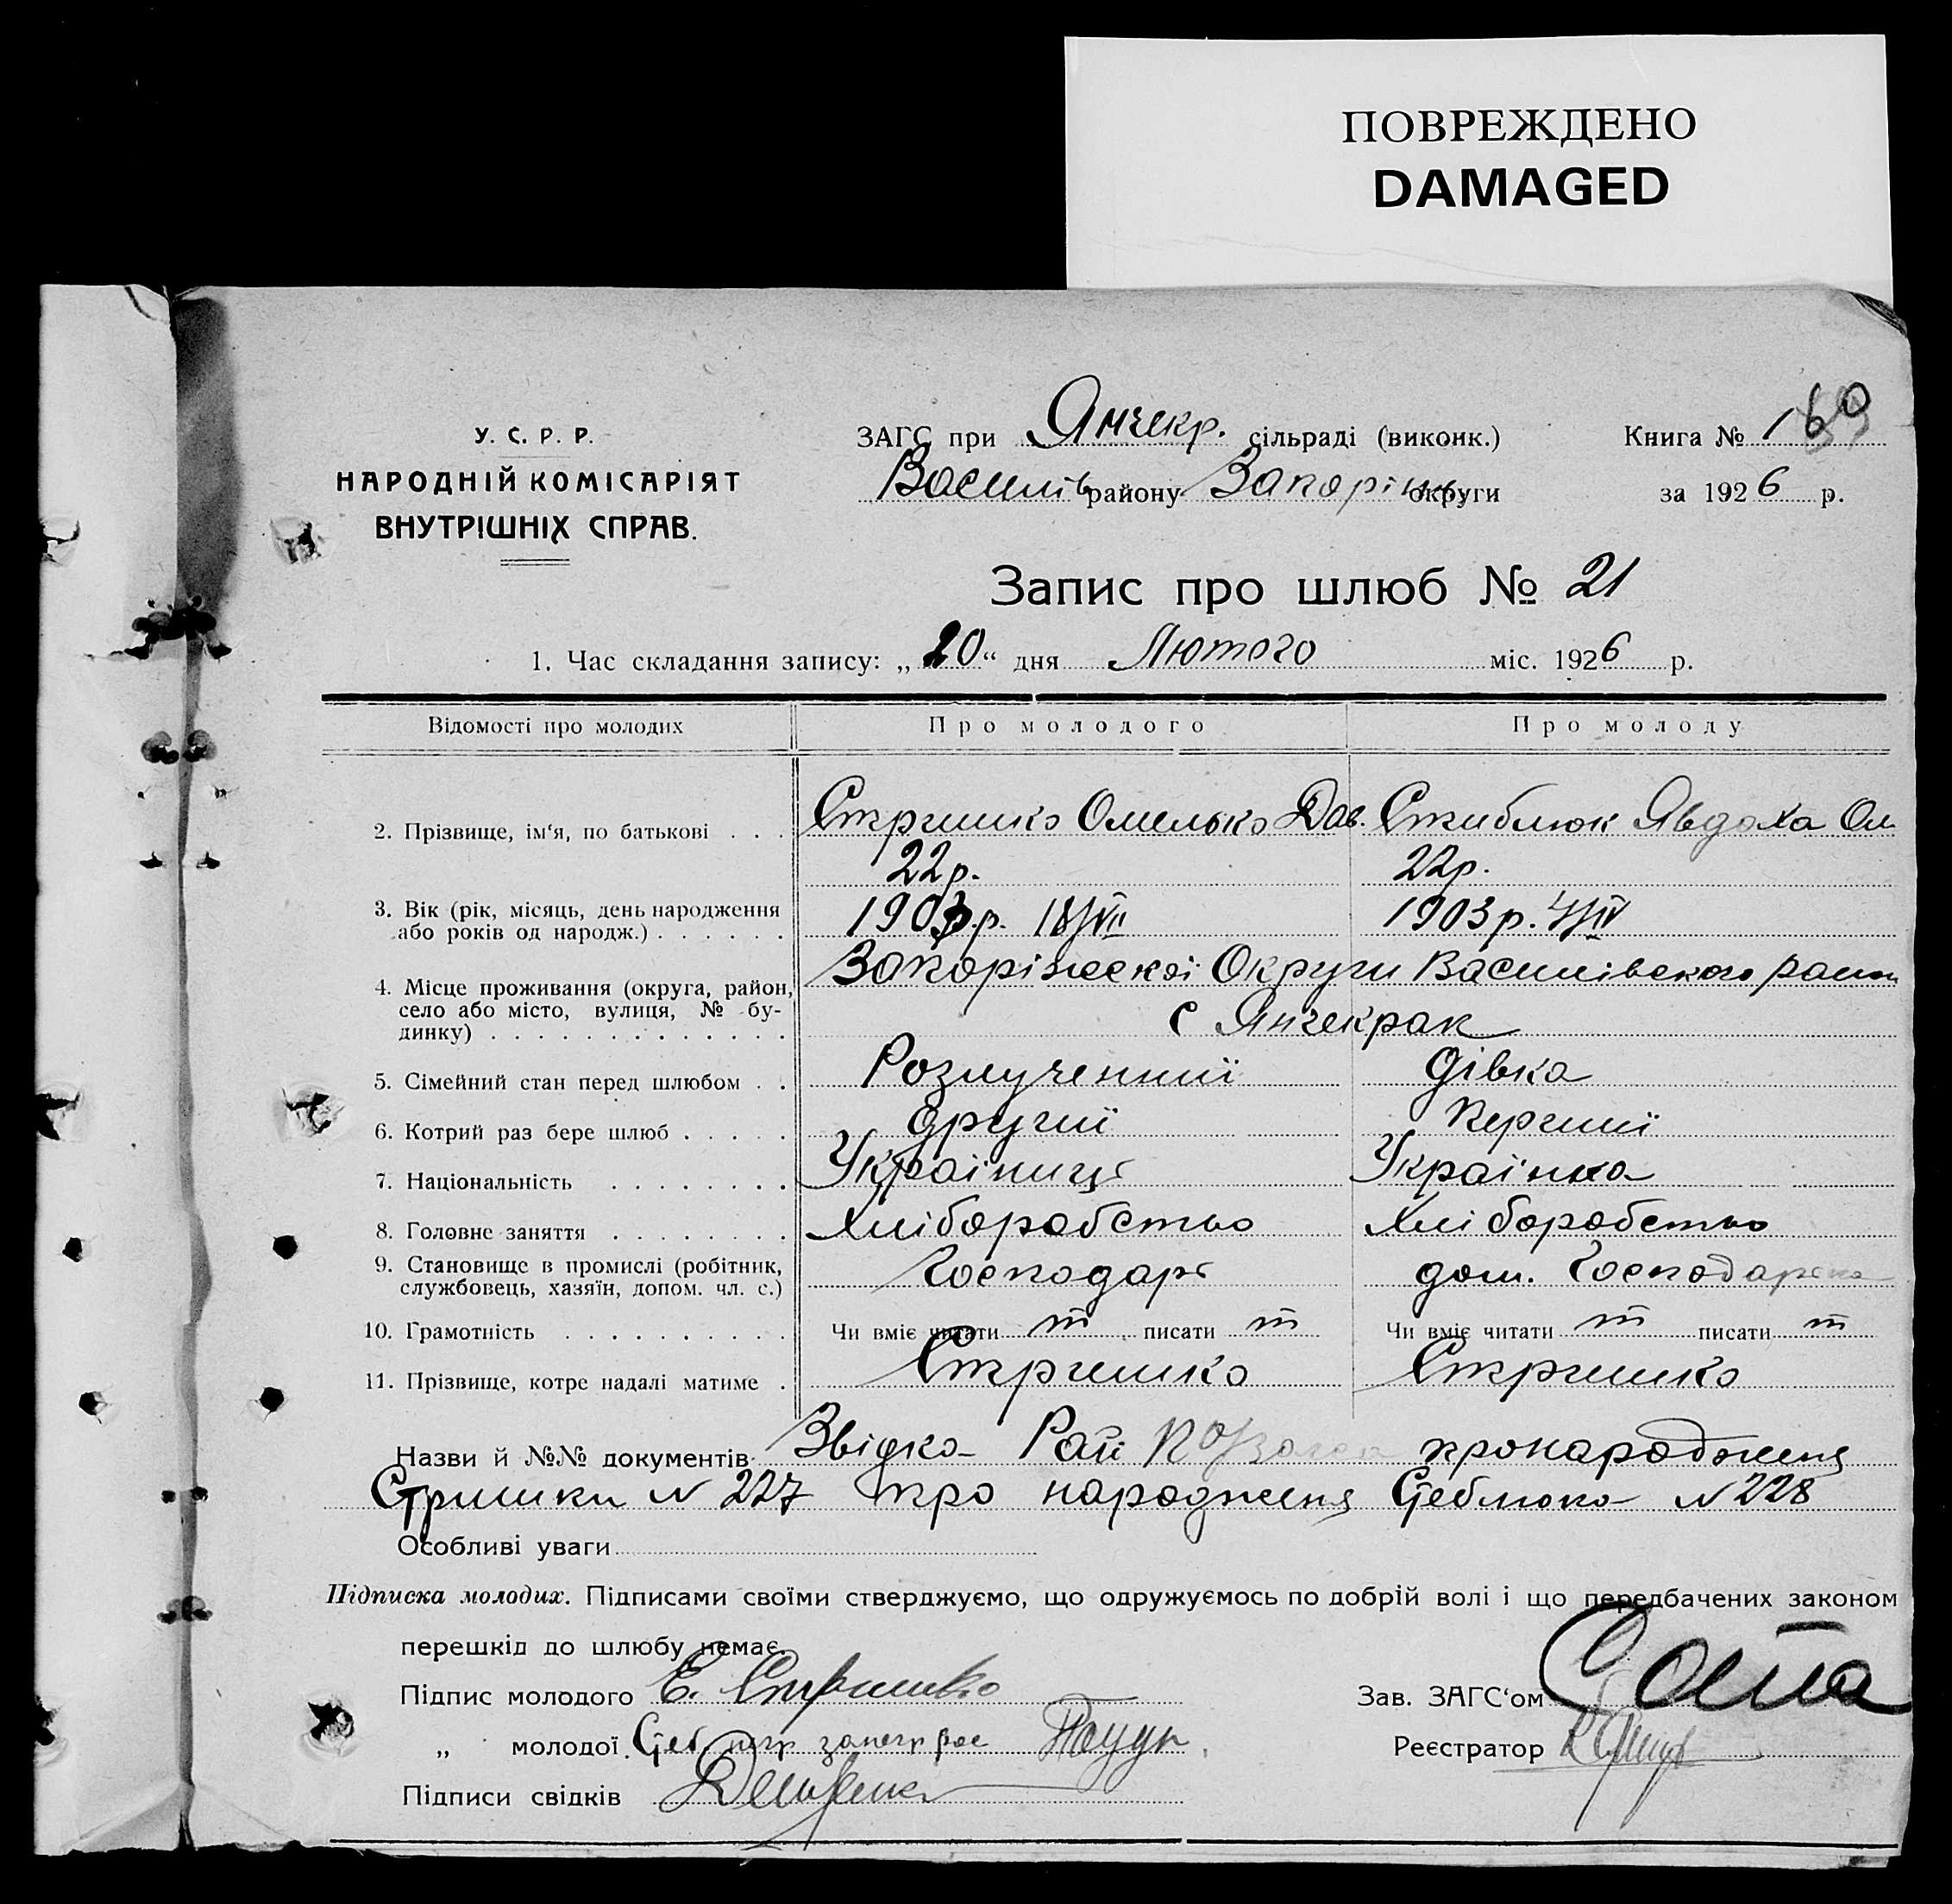 ПОВРЕЖДЕНО
DAMAGED
У. С. Р. Р.
НАРОДНІЙ КОМІСАРІЯТ
ВНУТРІШНІХ СПРАВ.
ЗАГС при Янчекр. сільраді (виконк.)
Василів району Запоріжж. округи
Книга № 160
за 1926 р.
Запис про шлюб № 21
1. Час складання запису: „20“ дня Лютого міс. 1926 р.
Відомості про молодих Про молодого Про молоду
2. Прізвище, ім'я, по батькові . . . Стришко Омелько Дав. Стиблюк Явдоха Ом
22р. 22р.
3. Вік (рік, місяць, день народження 1903р. 18/VII 1903р. 4/IV
або років од народж.) . . . . . .
Запоріжескоі Округи Василівского район
4. Місце проживання (округа, район,
село або місто, вулиця, № бу- с Янчекрак
динку) . . . . . . . . . . . . .
5. Сімейний стан перед шлюбом . . Розлученний дівка
6. Котрий раз бере шлюб . . . . . другий перчий
7. Національність . . . . . . . . Українць Українка
8. Головне заняття . . . . . . . . Хліборобство Хліборобство
9. Становище в промислі (робітник, Господарь дом. Господарка
службовець, хазяїн, допом. чл. с.)
10. Грамотність . . . . . . . . . . Чи вміє читати т писати т Чи вміє читати т писати т
11. Прізвище, котре надалі матиме . Стришко Стришко
Назви й №№ документів Звідка Рай про народженя
Стришки N 227 про народженя Стеблюка N 228
Особливі уваги
Підписка молодих. Підписами своїми стверджуємо, що одружуємось по добрій волі і що передбачених законом
перешкід до шлюбу немає.
Підпис молодого Е. Стришко
Зав. ЗАГС'ом
„ молодої Стеб.
Реєстратор
Підписи свідків